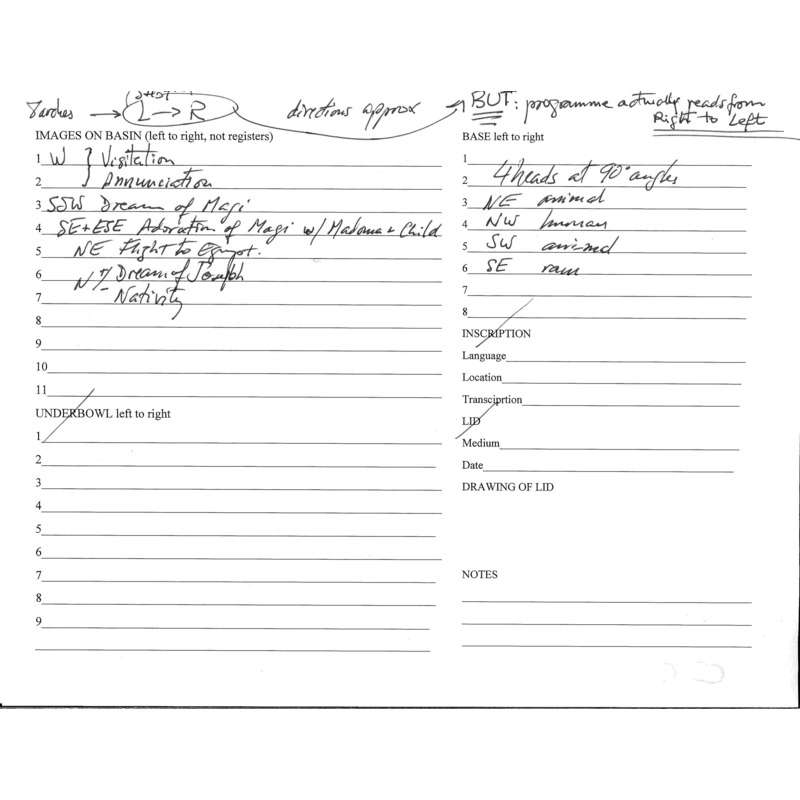 7 arches → L → R directions approx BUT: programme actually reads from
Right to Left
IMAGES ON BASIN (left to right, not registers)
1 W } Visitation
2 Annunciation
3 SSW Dream of Magi
4 SE+ESE Adoration of Magi w/ Madonna + Child
5 NE Flight to Egypt.
6 N Dream of Joseph
7 - Nativity
8
9
10
11
UNDERBOWL left to right
1
2
3
4
5
6
7
8
9
BASE left to right
1
2 4 heads at 90° angles
3 NE animal
4 NW human
5 SW animal
6 SE ram
7
8
INSCRIPTION
Language
Location
Transciprtion
LID
Medium
Date
DRAWING OF LID
NOTES